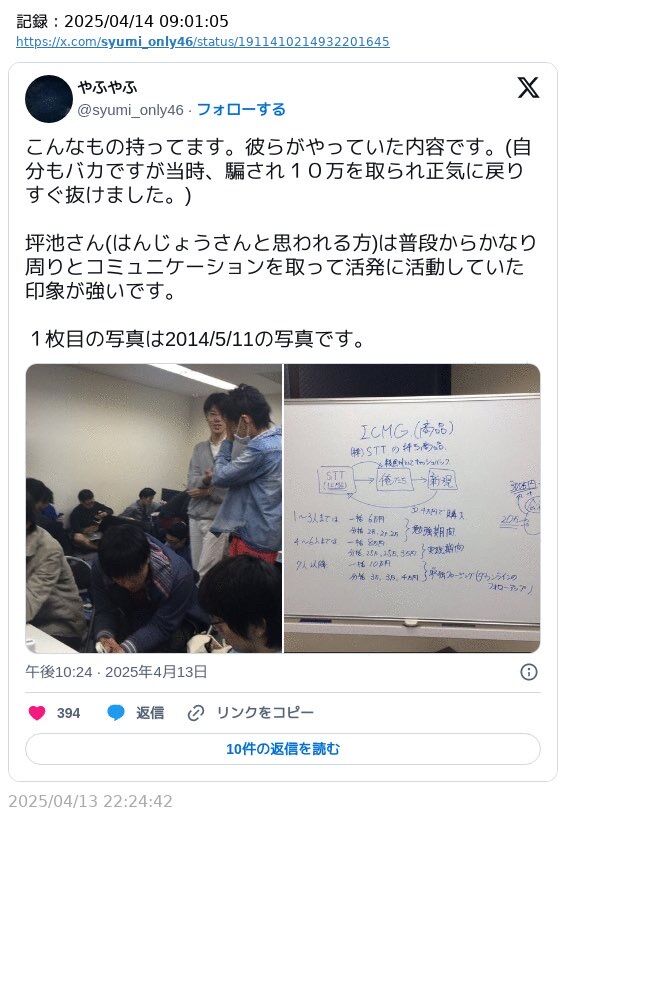 記録：2025/04/14 09:01:05
https://x.com/syumi_only46/status/1911410214932201645
やふやふ
@syumi_only46 · フォローする
こんなもの持ってます。彼らがやっていた内容です。(自
分もバカですが当時、騙され１０万を取られ正気に戻り
すぐ抜けました。)
坪池さん(はんじょうさんと思われる方)は普段からかなり
周りとコミュニケーションを取って活発に活動していた
印象が強いです。
１枚目の写真は2014/5/11の写真です。
ICMG(商品)
(株)STTの持ち商品
STT
俺たち
新規
で購入
1〜3人までは 一括 6万円
分括 2万,2万,2万
勉強期間
4〜6人までは 一括 8万円
分括 2.5万,2.5万,3万円
実践期間
7人以降 一括 10万円
分括 3万,3万,4万円
(ダウンラインの
フォローアップ)
20万
午後10:24 · 2025年4月13日
394 返信 リンクをコピー
10件の返信を読む
2025/04/13 22:24:42